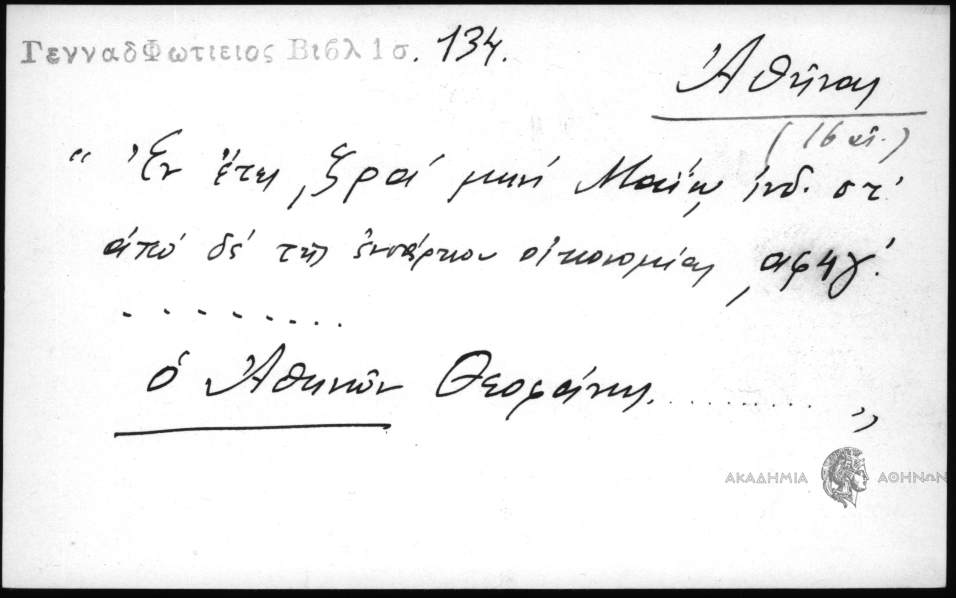 ΓενναδΦωτιειος Βιβλ 1σ. 134.
Ἀθῆναι
(16 αἰ.)
“Ἐν ἔτει ͵ζραʹ μηνὶ Μαΐῳ ἰνδ. στʹ
ἀπό δέ τῆς ἐνσάρκου οἰκονομίας ͵αφϟγʹ.
. . . . . . . .
ὁ Ἀθηνῶν Θεοφάνης.......... ”
ΑΚΑΔΗΜΙΑ ΑΘΗΝΩΝ